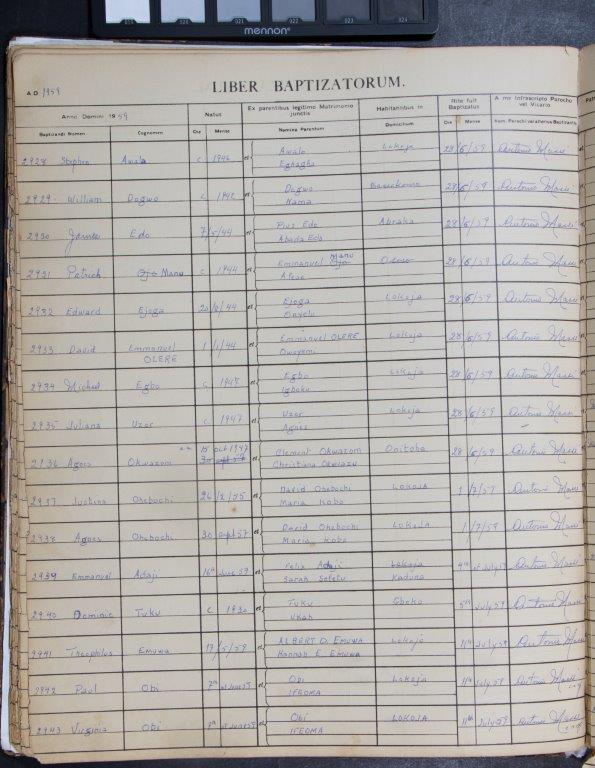 019 020 021 022 023 024
mennon
LIBER BAPTIZATORUM.
A D 1959
Anno Domini 1959 Natus Ex parentibus legitimo Matrimonio junctis Habitantibus in Rite fuit Baptizatus A me infrascripto Parocho vel Vicario
Baptizandi Nomen Cognomen Die Mense Nomina Parentum Domicilium Die Mense
2928 Stephen Awala c. 1942 et Awala Lokoja 28/6/59 Antonio
Eghagha
2929 William Dogwo c. 1942 et Dogwo 28/6/59 Antonio
Nama
2930 James Edo 7/5/44 et Pius Edo Abraka 28/6/59 Antonio
Abada Edo
2931 Patrick Ojo Manu c. 1944 et Emmanuel Ojo Manu 28/6/59 Antonio
2932 Edward Ejoga /44 et Ejoga Lokoja 28/6/59 Antonio
2933 David Emmanuel OLERE 1/1/44 et Emmanuel OLERE Lokoja 28/6/59 Antonio
Owoyemi
2934 Michael Egbo c. et Egbo Lokoja 28/6/59 Antonio
Igboku
2935 Juliana Uzor c. 1947 et Uzor Lokoja 28/6/59 Antonio
Agnes
2936 Agnes Okwazom 15 oct 1947 et Clement Okwazom Onitsha 28/6/59 Antonio
Christiana Okwazu
2937 Justina Ohebochi 26/2/55 et David Ohebochi LOKOJA 1/7/59 Antonio
Maria Kobo
2938 Agnes Ohebochi 30 Sept 57 et David Ohebochi LOKOJA 1/7/59 Antonio
Maria Kobo
2939 Emmanuel Adaji 16th June 59 et Felix Adaji Lokoja 4th of July 59 Antonio
Sarah Sefetu Kaduna
2940 Dominic Tuku c. 1930 et Tuku Gboko 5th July 59 Antonio
Ukah
2941 Theophilus EMUWA 17/5/59 et ALBERT D. EMUWA Lokoja 11th July 59 Antonio
Hannah E. EMUWA
2942 Paul Obi 7th of June 59 et Obi Lokoja 11th July 59 Antonio
IFEOMA
2943 Virginia Obi 7th of June 59 et Obi LOKOJA 11th July 59 Antonio
IFEOMA